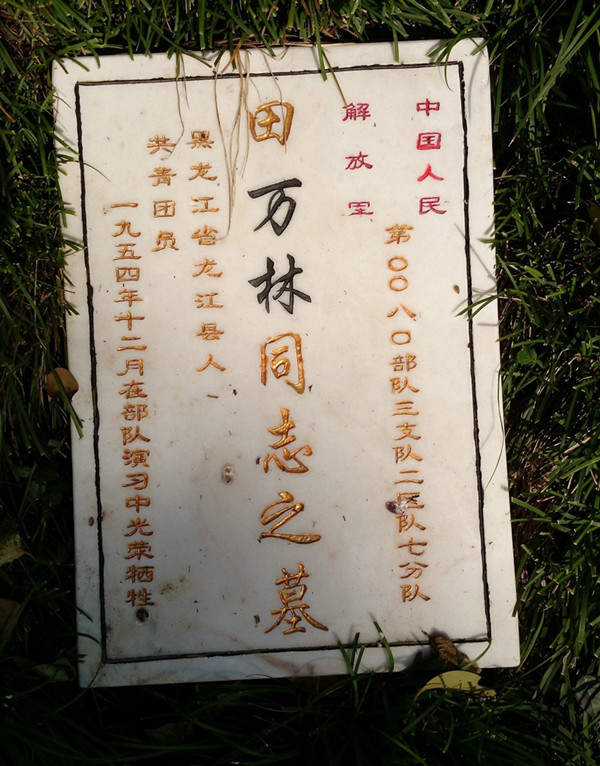 中国人民
解放军
第〇〇八〇部队三支队二区队七分队
田万林同志之墓
黑龙江省龙江县人
共青团员
一九五四年十二月在部队演习中光荣牺牲